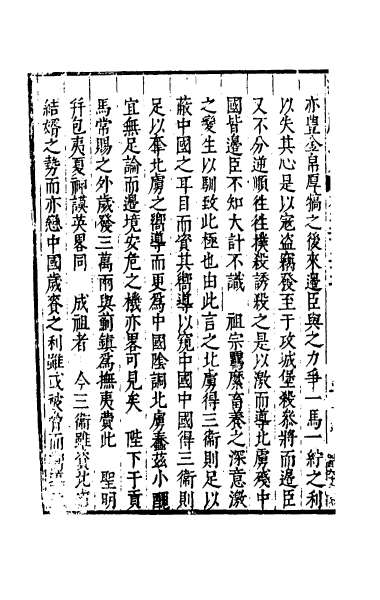 亦豊金帛厚犒之後來邊臣與之力爭一馬一紵之利
以失其心是以寇盗竊發至于攻城堡殺參將而邊臣
又不分逆順往往撲殺誘殺之是以激而導北虜殘中
國皆邊臣不知大計不識　祖宗羈縻畜養之深意激
之變生以馴致此極也由此言之北虜得三衞則足以
蔽中國之耳目而資其嚮導以窺中國中國得三衞則
足以奪北虜之嚮導而更為中國陰調北虜蠢茲小醜
宜無足論而邊境安危之機亦畧可見矣　陛下于貢
馬常賜之外歲發三萬兩與薊鎮為撫夷費此　聖明
并包夷夏神謨英畧同　成祖者　今三衞雖資北
結婚之勢而亦戀中國歲賚之利雖或被脅而